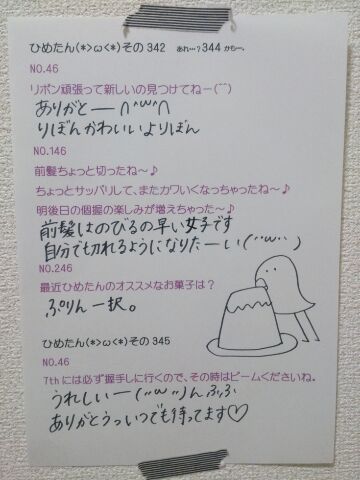 ひめたん(*>ω<*)その342 あれ…?344かもー。
NO.46
リボン頑張って新しいの見つけてねー(⌒⌒)
ありがとーー∩^ω^∩
りぼんかわいいよりぼん
NO.146
前髪ちょっと切ったね～♪
ちょっとサッパリして、またカワいくなっちゃったね～♪
明後日の個握の楽しみが増えちゃった～♪
前髪はのびるの早い女子です
自分でも切れるようになりたーい(¨ω¨)
NO.246
最近ひめたんのオススメなお菓子は?
ぷりん一択。
ひめたん(*>ω<*)その345
NO.46
7thには必ず握手しに行くので、その時はビームくださいね。
うれしいー(¨ω¨)んふふ
ありがとうっいつでも待ってます♡